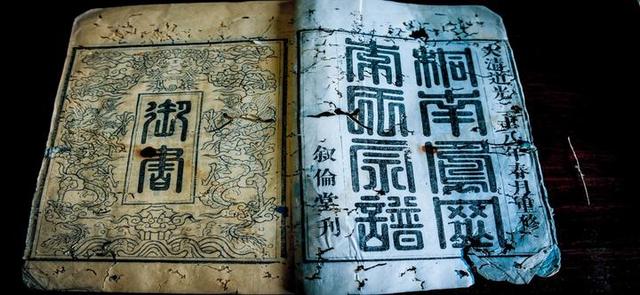 大清道光二十八年春月重修
桐南鳳
宗譜
叙倫堂刊
御書